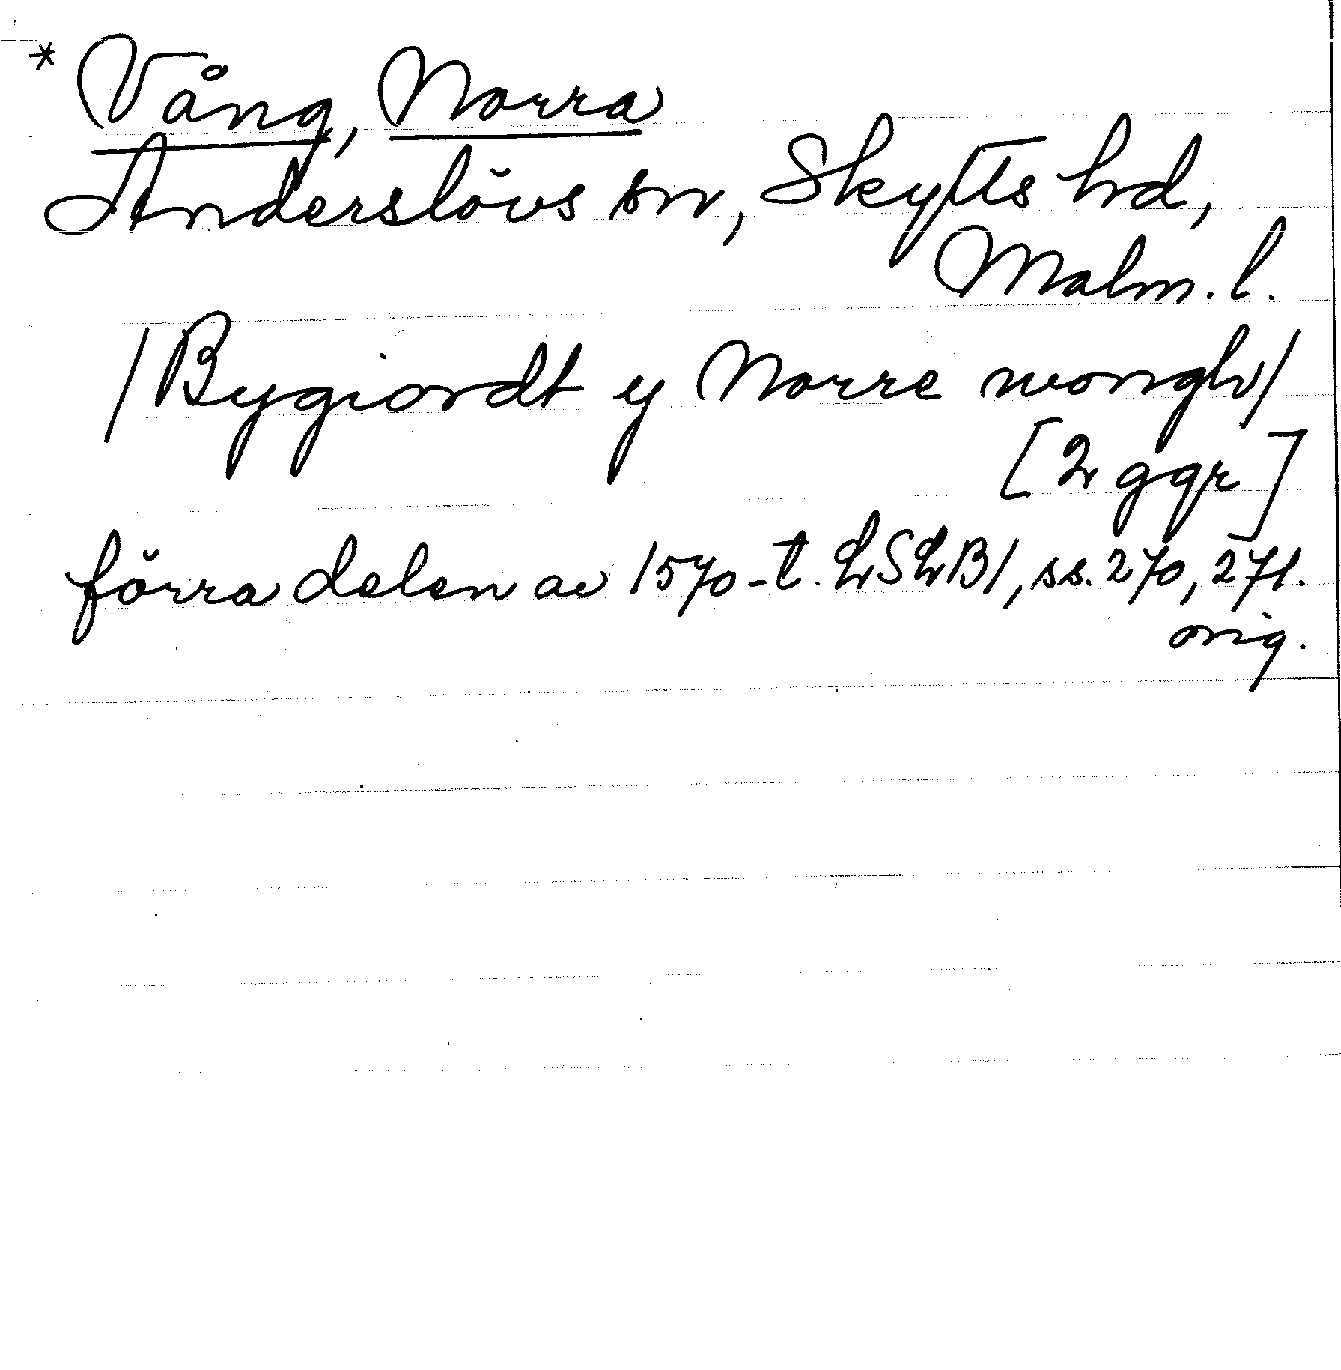 * Vång, Norra
Anderslövs sn, Skytts hd,
Malm. l.
/Bygiordt y Norre wongh/
[2 ggr]
förra delen av 1570-t. LSLB1, ss. 270, 271.
orig.